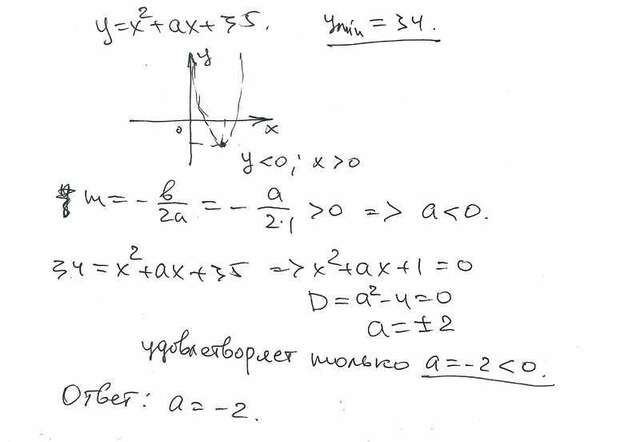 y=x²+ax+35. yмin=34.
y
0 x
y<0; x>0
m=-в/2a=-a/2·1>0 => a<0.
34=x²+ax+35 => x²+ax+1=0
D=a²-4=0
a=±2
удовлетворяет только a=-2<0.
Ответ: a=-2.